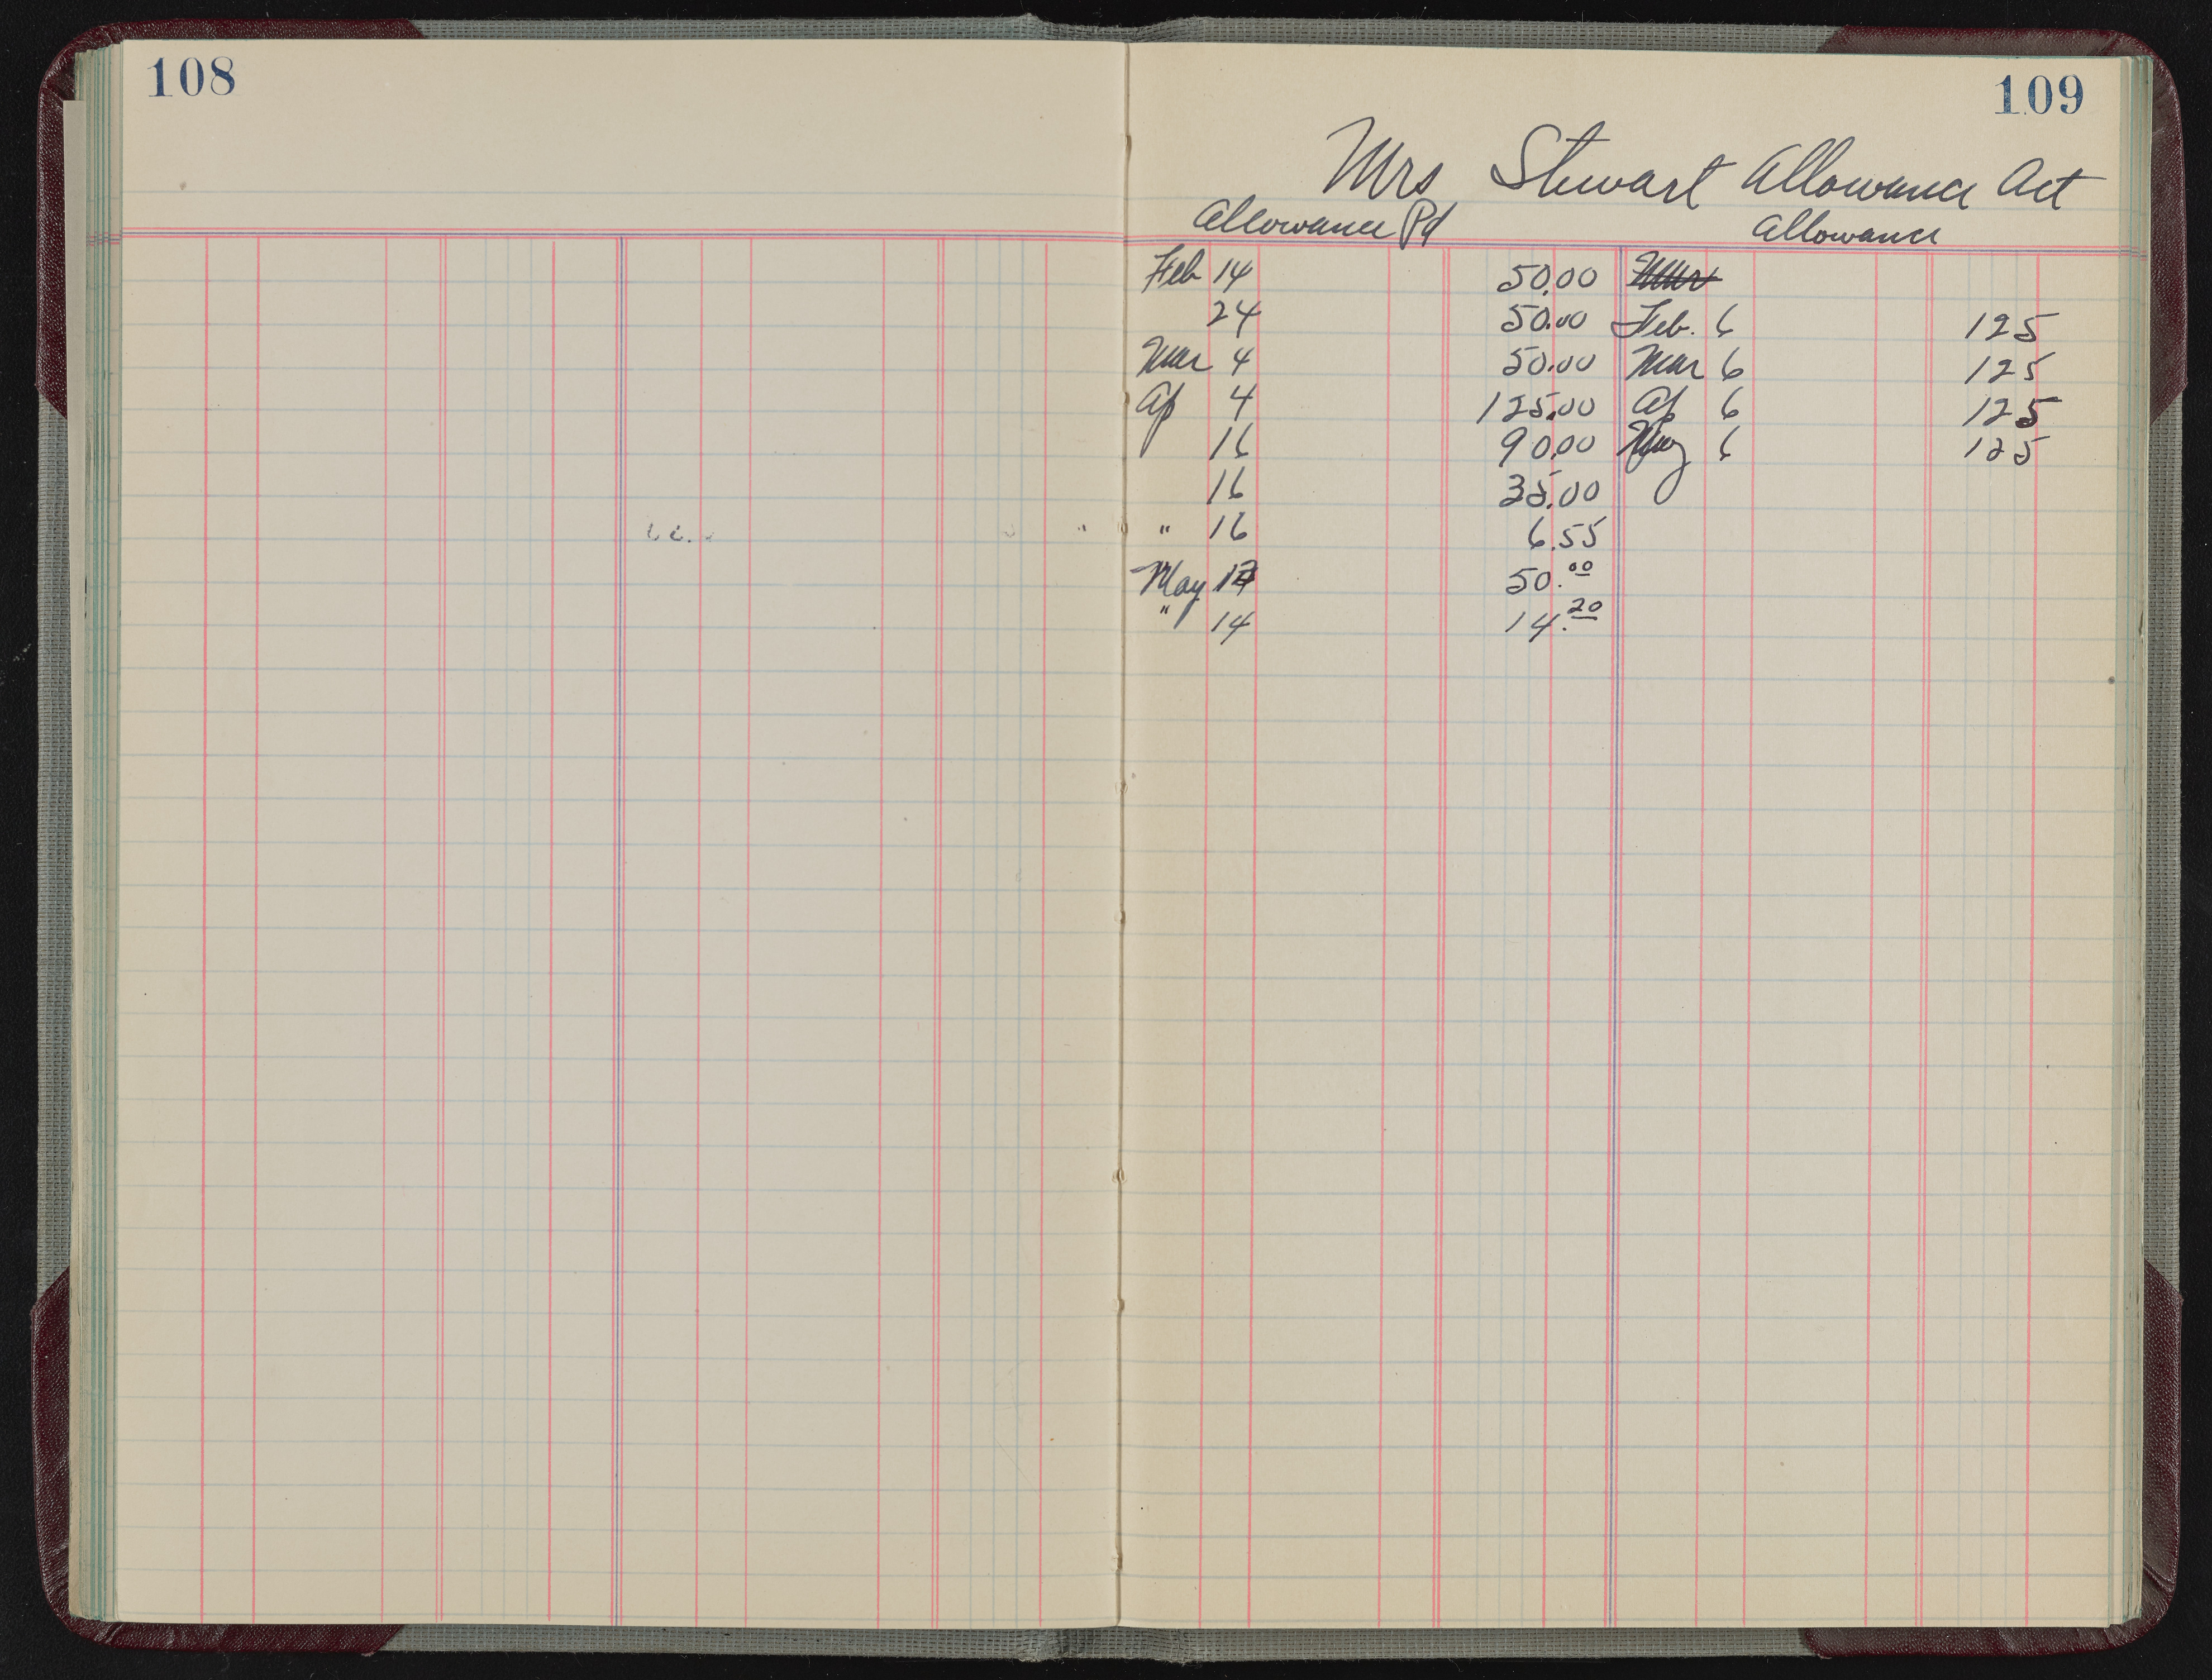 108
109
Mrs Stewart Allowance Act
Allowance Pd Allowance
Feb 14 50.00
24 50.00 Feb. 6 125
Mar 4 50.00 Mar 6 125
Ap 4 125.00 Ap 6 125
16 90.00 May 6 125
16 35.00
" 16 6.55
May 50.00
" 14 14.20